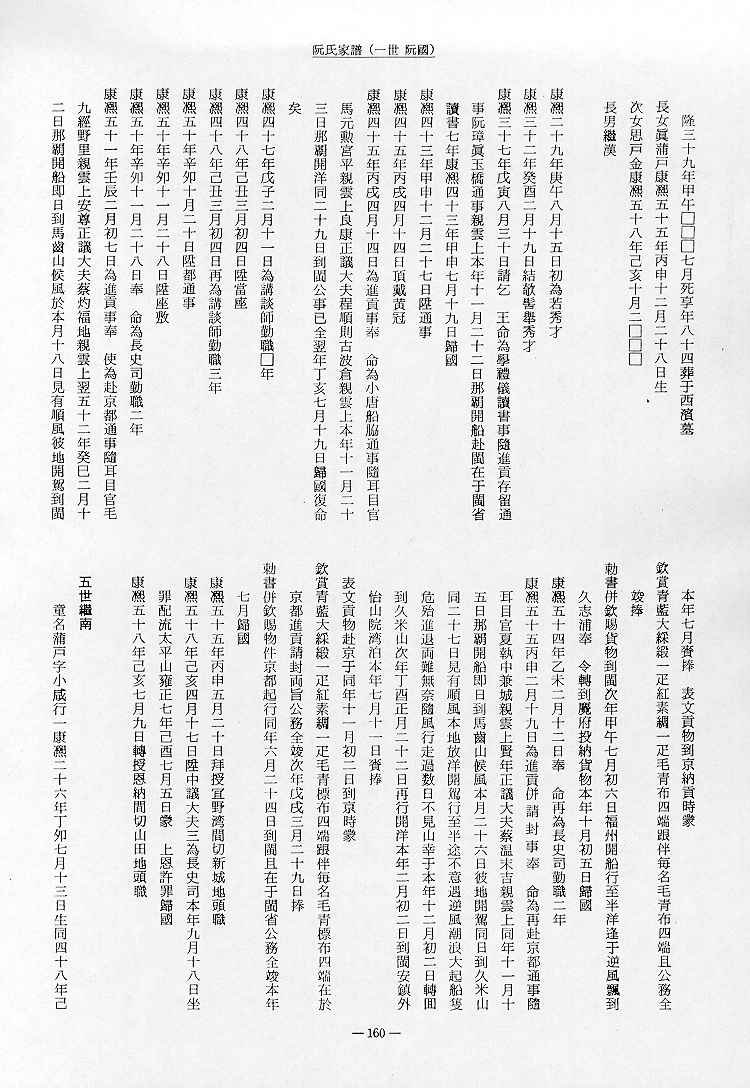 阮氏家譜（一世 阮國）
隆三十九年甲午□□□七月死享年八十四葬于西濱墓
長女眞蒲戸康熙五十五年丙申十二月二十八日生
次女思戸金康熙五十八年己亥十月二□□□
長男繼漢
康熙二十九年庚午八月十五日初為若秀才
康熙三十二年癸酉二月十九日結敬髻舉秀才
康熙三十七年戊寅八月三十日請乞　王命為學禮儀讀書事隨進貢存留通
事阮璋眞玉橋通事親雲上本年十一月二十二日那覇開船赴閩在于閩省
讀書七年康熙四十三年甲申七月十九日歸國
康熙四十三年甲申十二月二十七日陞通事
康熙四十五年丙戌四月十四日頂戴黄冠
康熙四十五年丙戌四月十四日為進貢事奉　命為小唐船脇通事隨耳目官
馬元勲宮平親雲上良康正議大夫程順則古波倉親雲上本年十一月二十
三日那覇開洋同二十九日到閩公事已全翌年丁亥七月十九日歸國復命
矣
康熙四十七年戊子二月十一日為講談師勤職□年
康熙四十八年己丑三月初四日陞當座
康熙四十八年己丑三月初四日再為講談師勤職三年
康熙五十年辛卯十月二十日陞都通事
康熙五十年辛卯十一月二十八日陞座敷
康熙五十年辛卯十一月二十八日奉　命為長史司勤職二年
康熙五十一年壬辰二月初七日為進貢事奉　使為赴京都通事隨耳目官毛
九經野里親雲上安尊正議大夫蔡灼福地親雲上翌五十二年癸巳二月十
二日那覇開船即日到馬齒山候風於本月十八日見有順風彼地開駕到閩
本年七月賫捧　表文貢物到京納貢時蒙
欽賞青藍大綵緞一疋紅素綢一疋毛青布四端跟伴毎名毛青布四端且公務全
竣捧
勅書併欽賜貨物到閩次年甲午七月初六日福州開船行至半洋逢于逆風飄到
久志浦奉　令轉到麑府投納貨物本年十月初五日歸國
康熙五十四年乙未二月十二日奉　命再為長史司勤職二年
康熙五十五丙申二月十九日為進貢併請封事奉　命為再赴京都通事隨
耳目官夏執中兼城親雲上賢年正議大夫蔡温末吉親雲上同年十一月十
五日那覇開船即日到馬齒山候風本月二十六日彼地開駕同日到久米山
同二十七日見有順風本地放洋開駕行至半途不意遇逆風潮浪大起船隻
危殆進退両難無奈隨風行走過数日不見山幸于本年十二月初二日轉囬
到久米山次年丁酉正月二十二日再行開洋本年二月初二日到閩安鎮外
怡山院湾泊本年七月十一日賫捧
表文貢物赴京于同年十一月初二日到京時蒙
欽賞青藍大綵緞一疋紅素綢一疋毛青標布四端跟伴毎名毛青標布四端在於
京都進貢請封両旨公務全竣次年戊戌三月二十九日捧
勅書併欽賜物件京都起行同年六月二十四日到閩且在于閩省公務全竣本年
七月歸國
康熙五十五年丙申五月二十日拜授宜野湾間切新城地頭職
康熙五十八年己亥四月十七日陞中議大夫三為長史司本年九月十八日坐
罪配流太平山雍正七年己酉七月五日蒙　上恩許罪歸國
康熙五十八年己亥七月九日轉授恩納間切山田地頭職
五世繼南
童名蒲戸字小咸行一康熙二十六年丁卯七月十三日生同四十八年己
― 160 ―